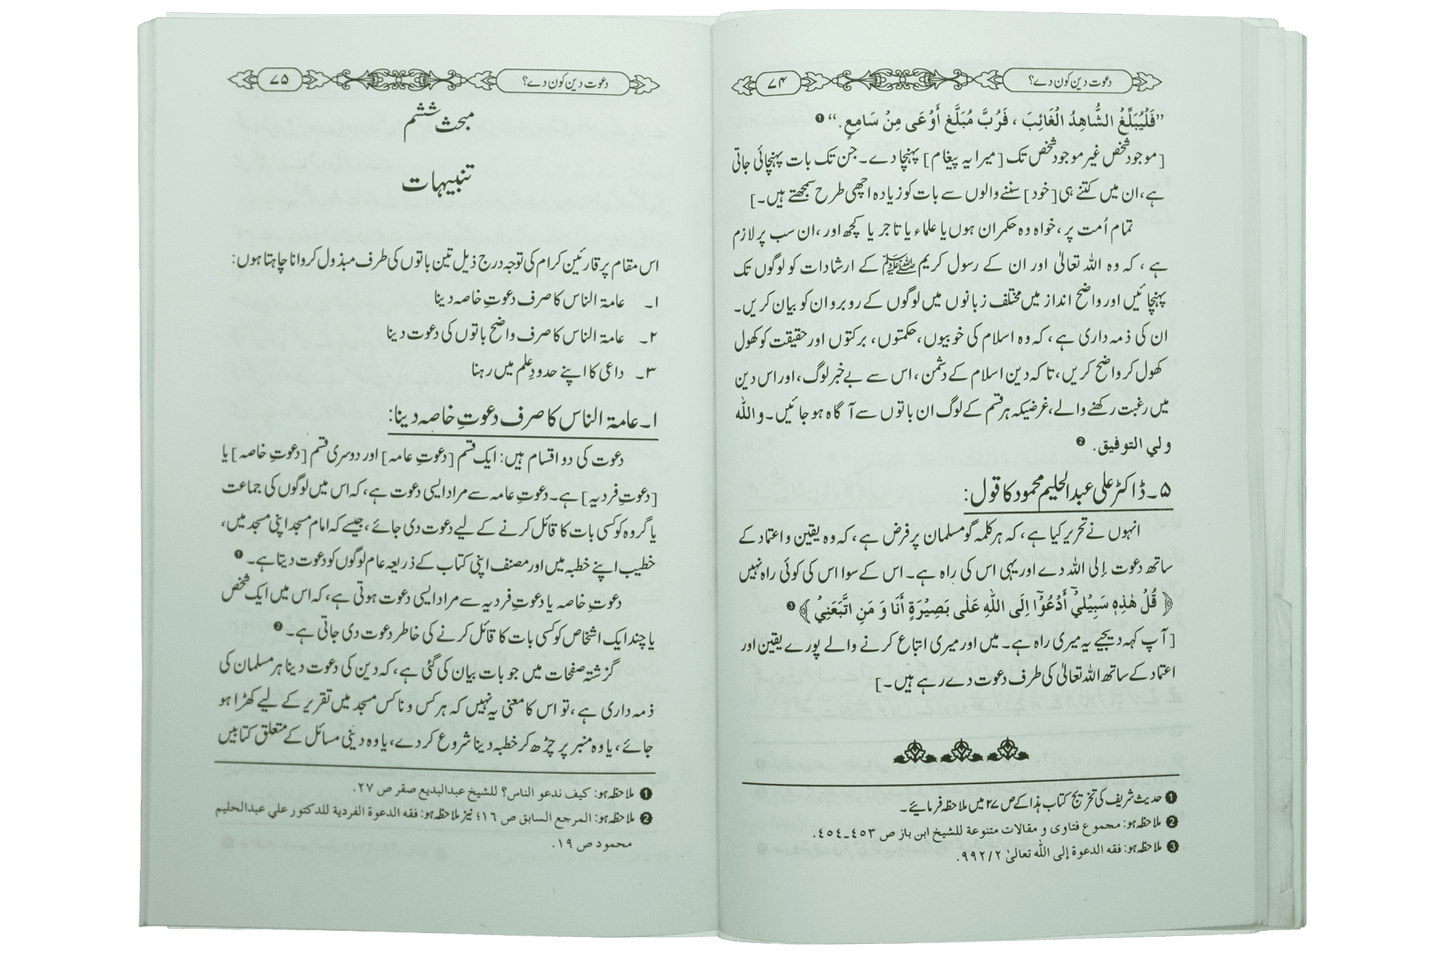 دعوت دین کون دے؟
۷۴
”فَلْيُبَلِّغُ الشَّاهِدُ الْغَائِبَ ، فَرُبَّ مُبَلَّغٍ أَوْعَى مِنْ سَامِعٍ .“ ❶
[موجود شخص غیر موجود شخص تک [میرا یہ پیغام] پہنچا دے۔ جن تک بات پہنچائی جاتی
ہے، ان میں کتنے ہی [خود] سننے والوں سے بات کو زیادہ اچھی طرح سمجھتے ہیں۔]
تمام اُمت پر، خواہ وہ حکمران ہوں یا علماء یا تاجر یا کچھ اور، ان سب پر لازم
ہے، کہ وہ اللہ تعالیٰ اور ان کے رسول کریم ﷺ کے ارشادات کو لوگوں تک
پہنچائیں اور واضح انداز میں مختلف زبانوں میں لوگوں کے روبرو ان کو بیان کریں۔
ان کی ذمہ داری ہے، کہ وہ اسلام کی خوبیوں، حکمتوں، برکتوں اور حقیقت کو کھول
کھول کر واضح کریں، تاکہ دین اسلام کے دشمن، اس سے بے خبر لوگ، اور اس دین
میں رغبت رکھنے والے، غرضیکہ ہر قسم کے لوگ ان باتوں سے آگاہ ہو جائیں۔ واللّٰه
ولي التوفيق. ❷
۵۔ ڈاکٹر علی عبدالحلیم محمود کا قول:
انہوں نے تحریر کیا ہے، کہ ہر کلمہ گو مسلمان پر فرض ہے، کہ وہ یقین و اعتماد کے
ساتھ دعوت إلی اللہ دے اور یہی اس کی راہ ہے۔ اس کے سوا اس کی کوئی راہ نہیں
﴿قُلْ هٰذِهٖ سَبِيْلِيْٓ اَدْعُوْٓا اِلَى اللّٰهِ عَلٰى بَصِيْرَةٍ اَنَا وَ مَنِ اتَّبَعَنِيْ﴾ ❸
[آپ کہہ دیجیے یہ میری راہ ہے۔ میں اور میری اتباع کرنے والے پورے یقین اور
اعتماد کے ساتھ اللہ تعالیٰ کی طرف دعوت دے رہے ہیں۔]
❶ حدیث شریف کی تخریج کتاب ہذا کے ص ۲۷ میں ملاحظہ فرمائیے۔
❷ ملاحظہ ہو: مجموع فتاوى و مقالات متنوعة للشيخ ابن باز ص ٤٥٣-٤٥٤.
❸ ملاحظہ ہو: فقه الدعوة إلى اللّٰه تعالىٰ ٩٩٢/٢.
دعوت دین کون دے؟
۷۵
مبحث ششم
تنبیہات
اس مقام پر قارئین کرام کی توجہ درج ذیل تین باتوں کی طرف مبذول کروانا چاہتا ہوں:
۱۔ عامۃ الناس کا صرف دعوتِ خاصہ دینا
۲۔ عامۃ الناس کا صرف واضح باتوں کی دعوت دینا
۳۔ داعی کا اپنے حدودِ علم میں رہنا
۱۔ عامۃ الناس کا صرف دعوتِ خاصہ دینا:
دعوت کی دو اقسام ہیں: ایک قسم [دعوتِ عامہ] اور دوسری قسم [دعوتِ خاصہ] یا
[دعوتِ فردیہ] ہے۔ دعوتِ عامہ سے مراد ایسی دعوت ہے، کہ اس میں لوگوں کی جماعت
یا گروہ کو کسی بات کا قائل کرنے کے لیے دعوت دی جائے، جیسے کہ امام مسجد اپنی مسجد میں،
خطیب اپنے خطبہ میں اور مصنف اپنی کتاب کے ذریعہ عام لوگوں کو دعوت دیتا ہے۔ ❶
دعوتِ خاصہ یا دعوتِ فردیہ سے مراد ایسی دعوت ہوتی ہے، کہ اس میں ایک شخص
یا چند ایک اشخاص کو کسی بات کا قائل کرنے کی خاطر دعوت دی جاتی ہے۔ ❷
گزشتہ صفحات میں جو بات بیان کی گئی ہے، کہ دین کی دعوت دینا ہر مسلمان کی
ذمہ داری ہے، تو اس کا معنی یہ نہیں کہ ہر کس و ناکس مسجد میں تقریر کے لیے کھڑا ہو
جائے، یا وہ منبر پر چڑھ کر خطبہ دینا شروع کر دے، یا وہ دینی مسائل کے متعلق کتابیں
❶ ملاحظہ ہو: كيف ندعو الناس؟ للشيخ عبدالبديع صقر ص ٢٧.
❷ ملاحظہ ہو: المرجع السابق ص ١٦؛ نیز ملاحظہ ہو: فقه الدعوة الفردية للدكتور علي عبدالحليم
محمود ص ١٩.